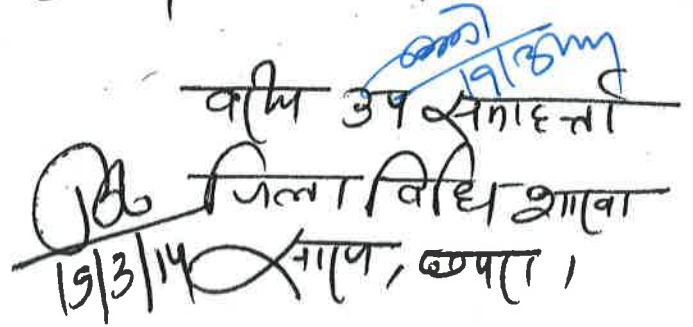 19/3/14
वरीय उप समाहर्त्ता
जिला विधि शाखा
19/3/14 सारण, छपरा।